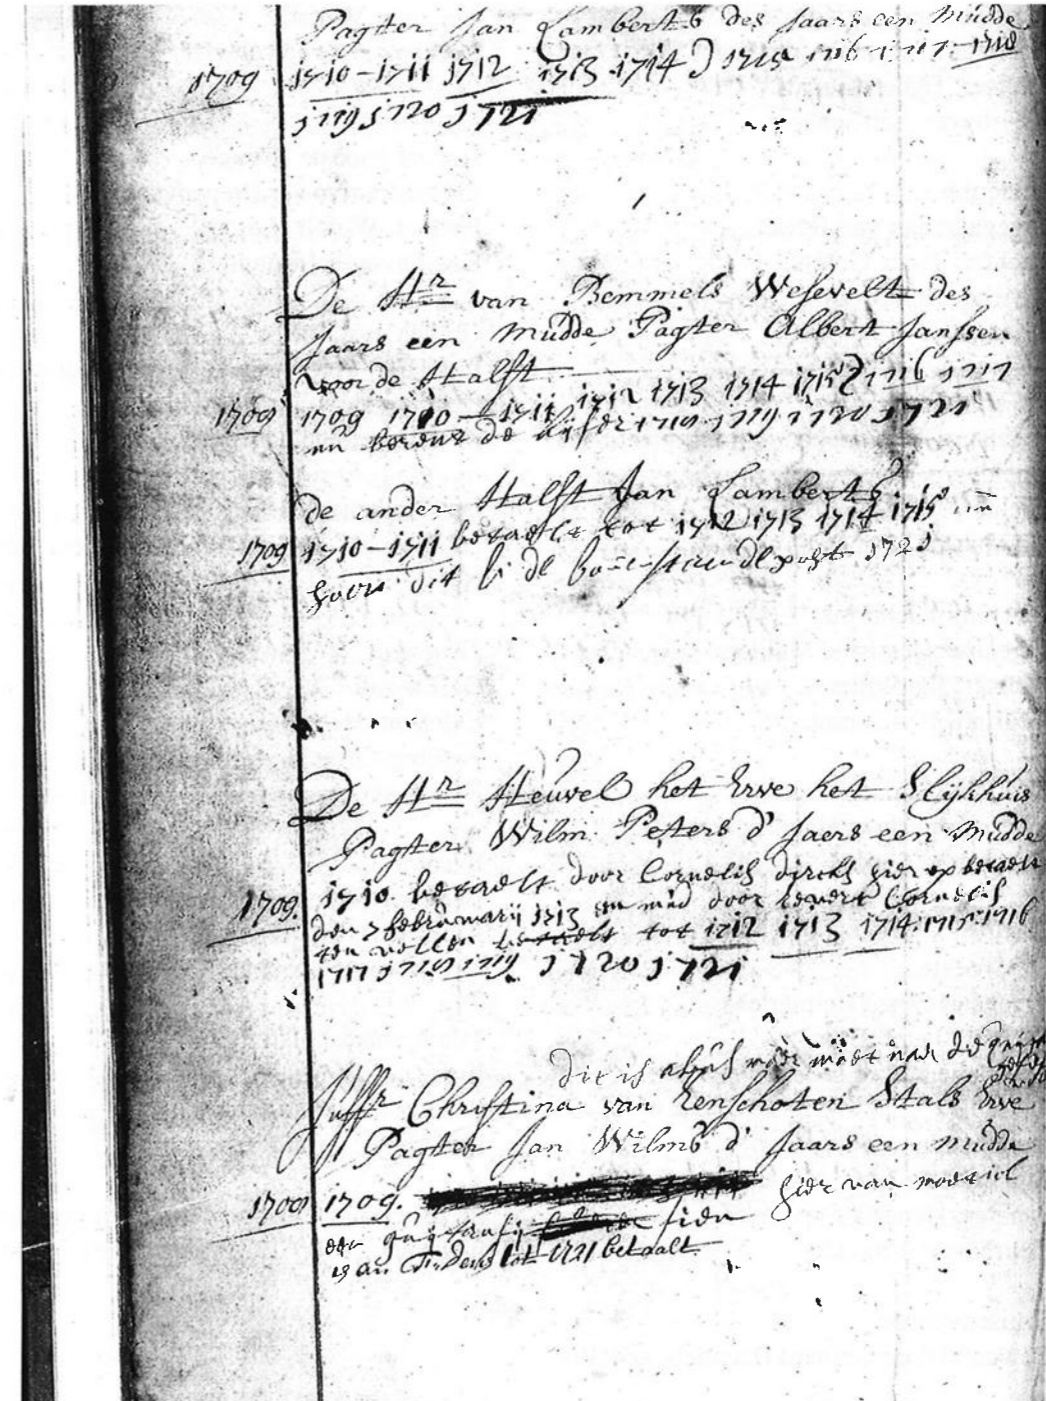 Pagter Jan Lambertß des Jaars een Mudde
1709 1710-1711 1712 1713 1714 1715 1716 1717-1718
1719 1720 1721
De Hr van Bemmels Wesevelt des
Jaars een Mudde Pagter Albert Janssen
voor de Halft 1712 1713 1714 1715 1716 1717
1709 1709 1710-1711
1719 1720 1721
de ander Halft Jan Lambertß
1709 1710-1711 betaelt tot 1712 1713 1714 1715
dit 1721
De Hr Heuvel het Erve het Slijkhuis
Pagter Wilm Peters d' Jaers een Mudde
1709. 1710 betaelt door Cornelis dircks hier op betaelt
den 7 februwarij 1713 een mud door Cornelis
ten vollen betaelt tot 1712 1713 1714:1715:1716
1717 1718 1719 1720 1721
dit is moet
Juffr Christina van Eenschoten Stals Erve
Pagter Jan Wilmß d' Jaars een mudde
1709 1709. hier van moet
een sien
is an tot 1721 betaalt